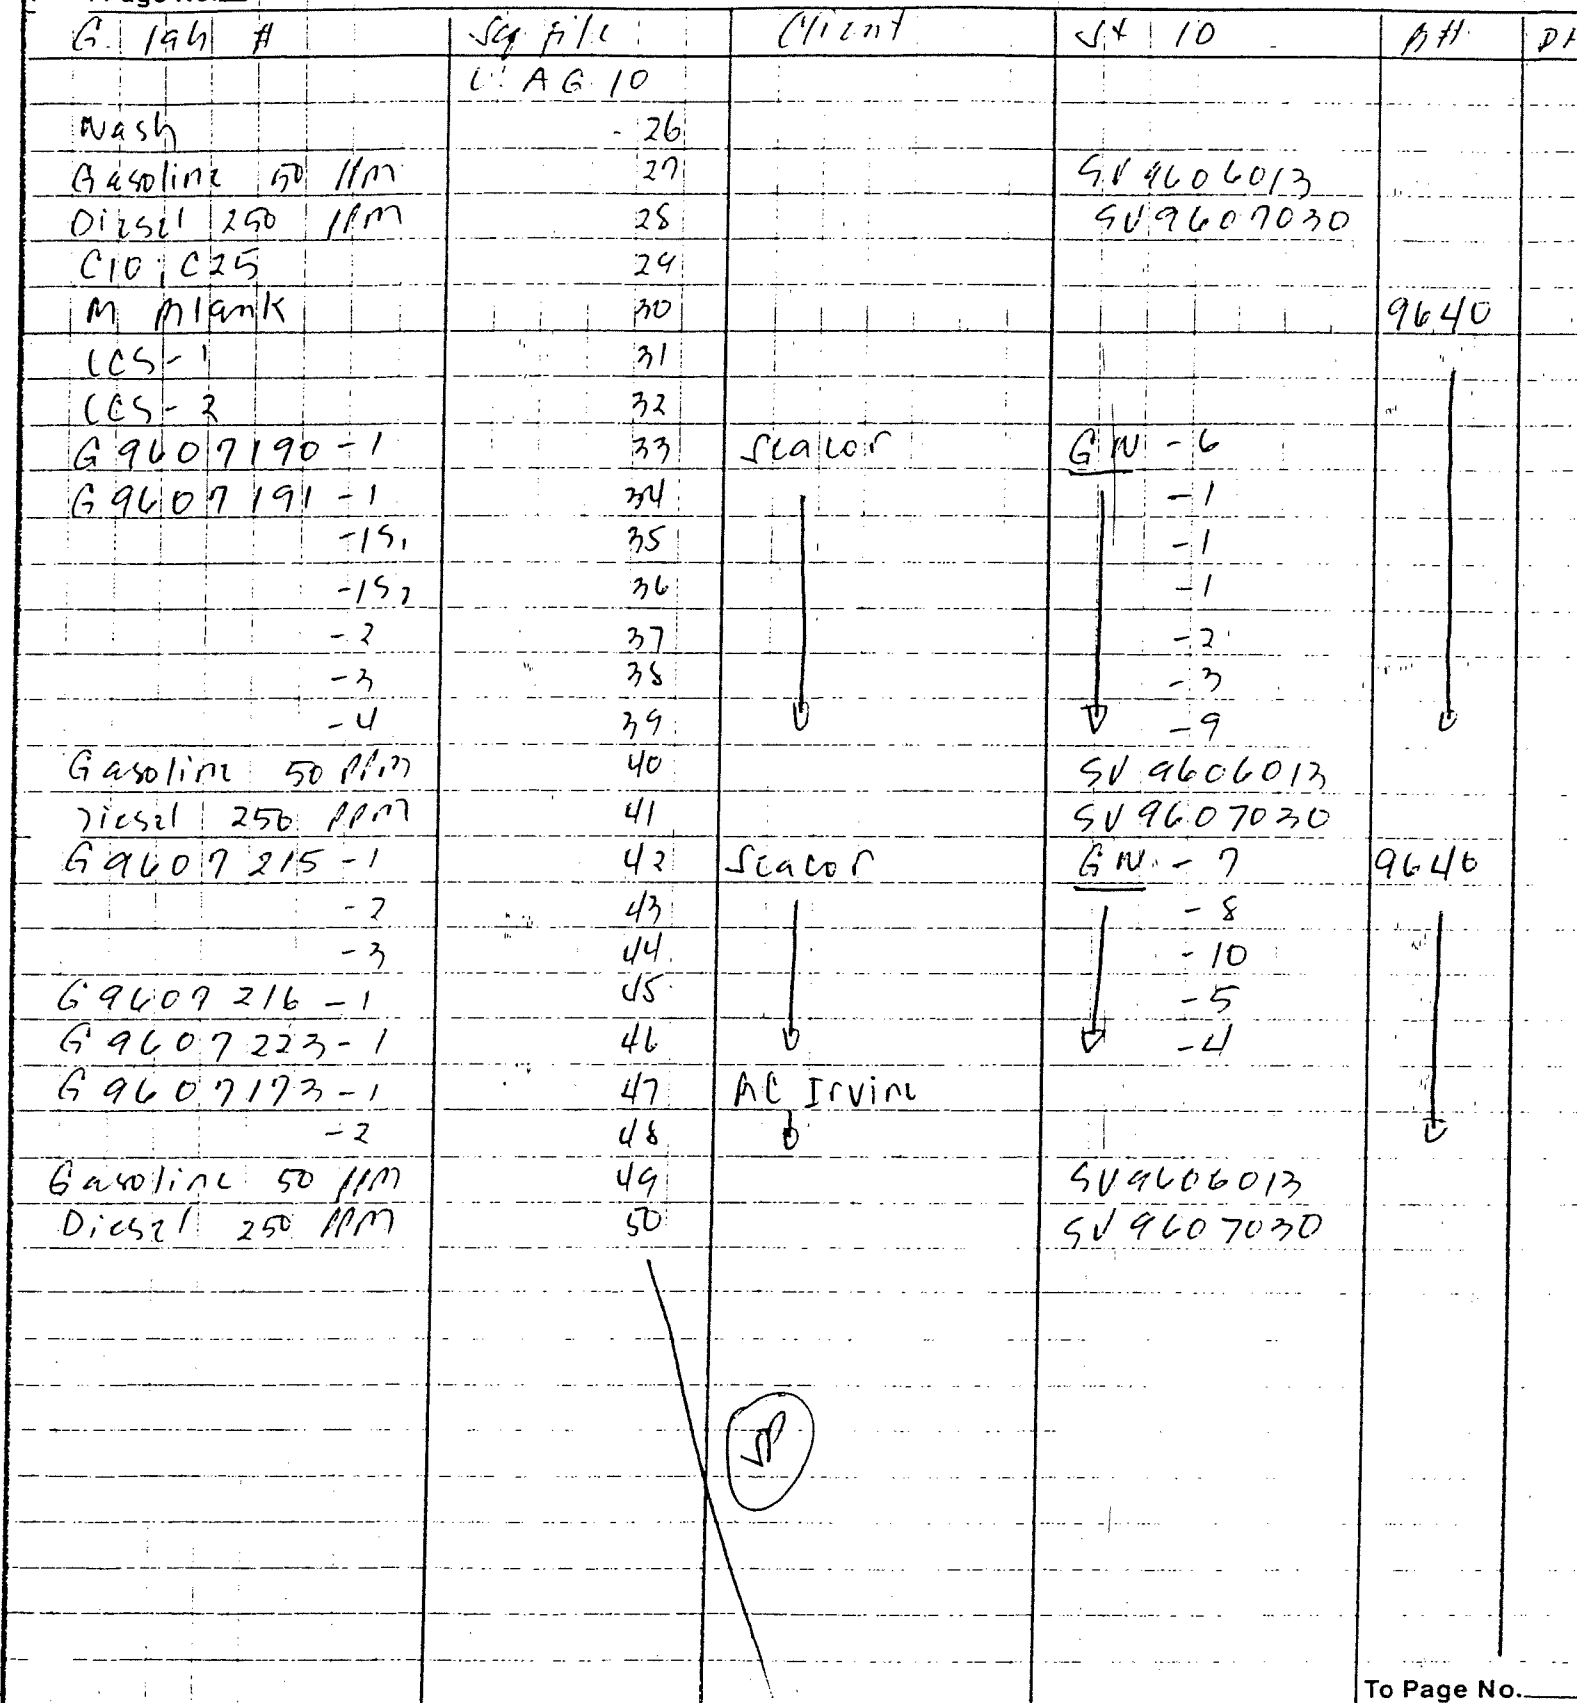 G. lab # Sq file Client St 10 B#
L: AG 10
Wash - 26
Gasoline 50 PPM 27 SV9606013
Diesel 250 PPM 28 SV9607030
C10, C25 29
M Blank 30 9640
LCS-1 31
LCS-2 32
G9607190-1 33 Seacor GW -6
G9607191-1 34 -1
-1S1 35 -1
-1S2 36 -1
-2 37 -2
-3 38 -3
-4 39 -9
Gasoline 50 PPM 40 SV9606013
Diesel 250 PPM 41 SV9607030
G9607215-1 42 Seacor GW -7 9640
-2 43 -8
-3 44 -10
G9607216-1 45 -5
G9607223-1 46 -4
G9607173-1 47 AC Irvine
-2 48
Gasoline 50 PPM 49 SV9606013
Diesel 250 PPM 50 SV9607030
To Page No.